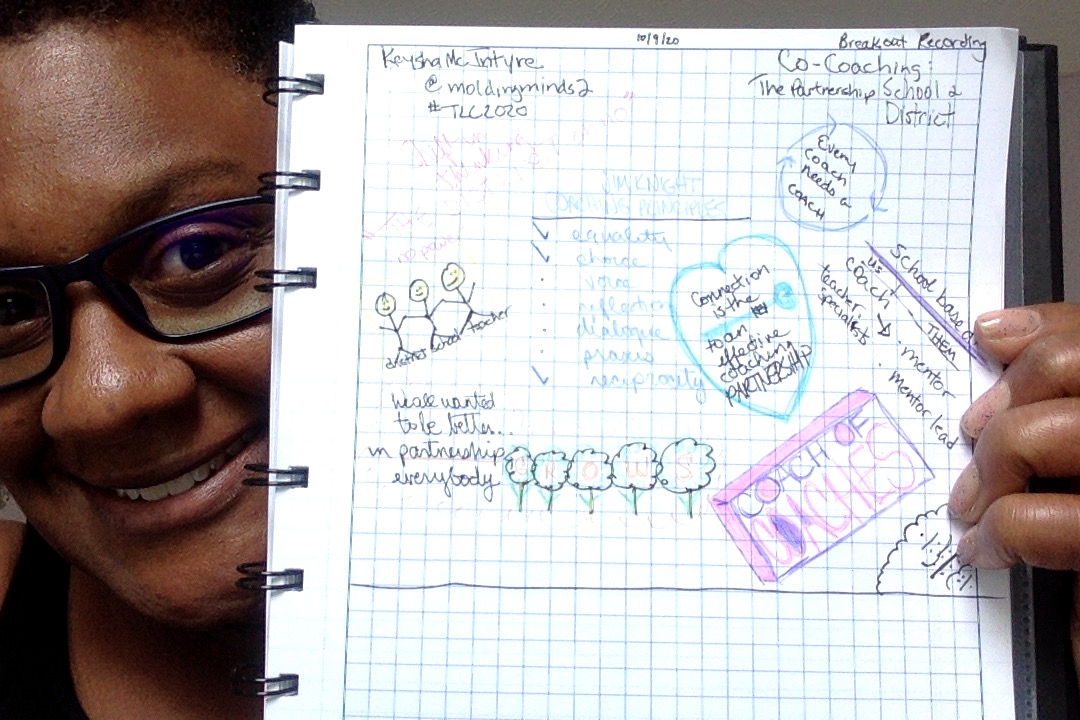 10/9/20
Breakout Recording
Keysha McIntyre
@moldingminds2
#TLC2020
Co-Coaching:
The Partnership School 2
District
Every
coach
needs a
coach
JIM KNIGHT
COACHING PRINCIPLES
equality
choice
voice
reflection
dialogue
praxis
reciprocity
district school teacher
Connection
is the
to an
effective
coaching
PARTNERSHIP
School based
us
coach
teacher
specialists
THEM
· mentor
· mentor lead
we all wanted
to be better...
in partnership
everybody
GROWS
COACH OF
COACHES